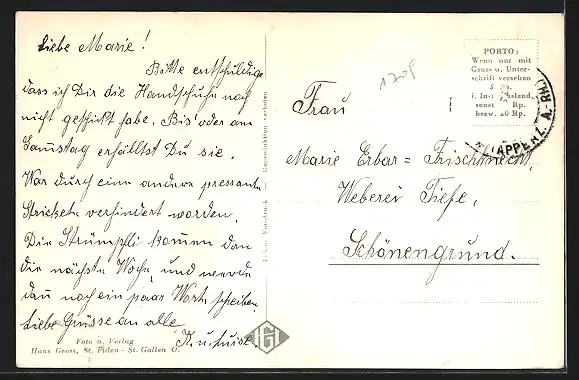 Liebe Marie!
Bitte entschuldige
dass ich Dir die Handschuhe noch
nicht geschickt habe. Bis oder am
Samstag erhältst Du sie.
War durch eine andere pressante
Strickete verhindert worden.
Die Strümpfli kommen dan
die nächste Woche, und werde
dan noch ein paar Worte schreiben.
Liebe Grüsse an alle,
Foto u. Verlag
Hans Gross, St. Fiden - St. Gallen O.
GI
PORTO:
Wenn nur mit
Gruss u. Unter-
schrift versehen
5
i.
sonst Rp.
bezw. 20 Rp.
A.-RH.)
Frau
Marie Erbar = Frischknecht,
Weberei Tiefe,
Schönengrund.